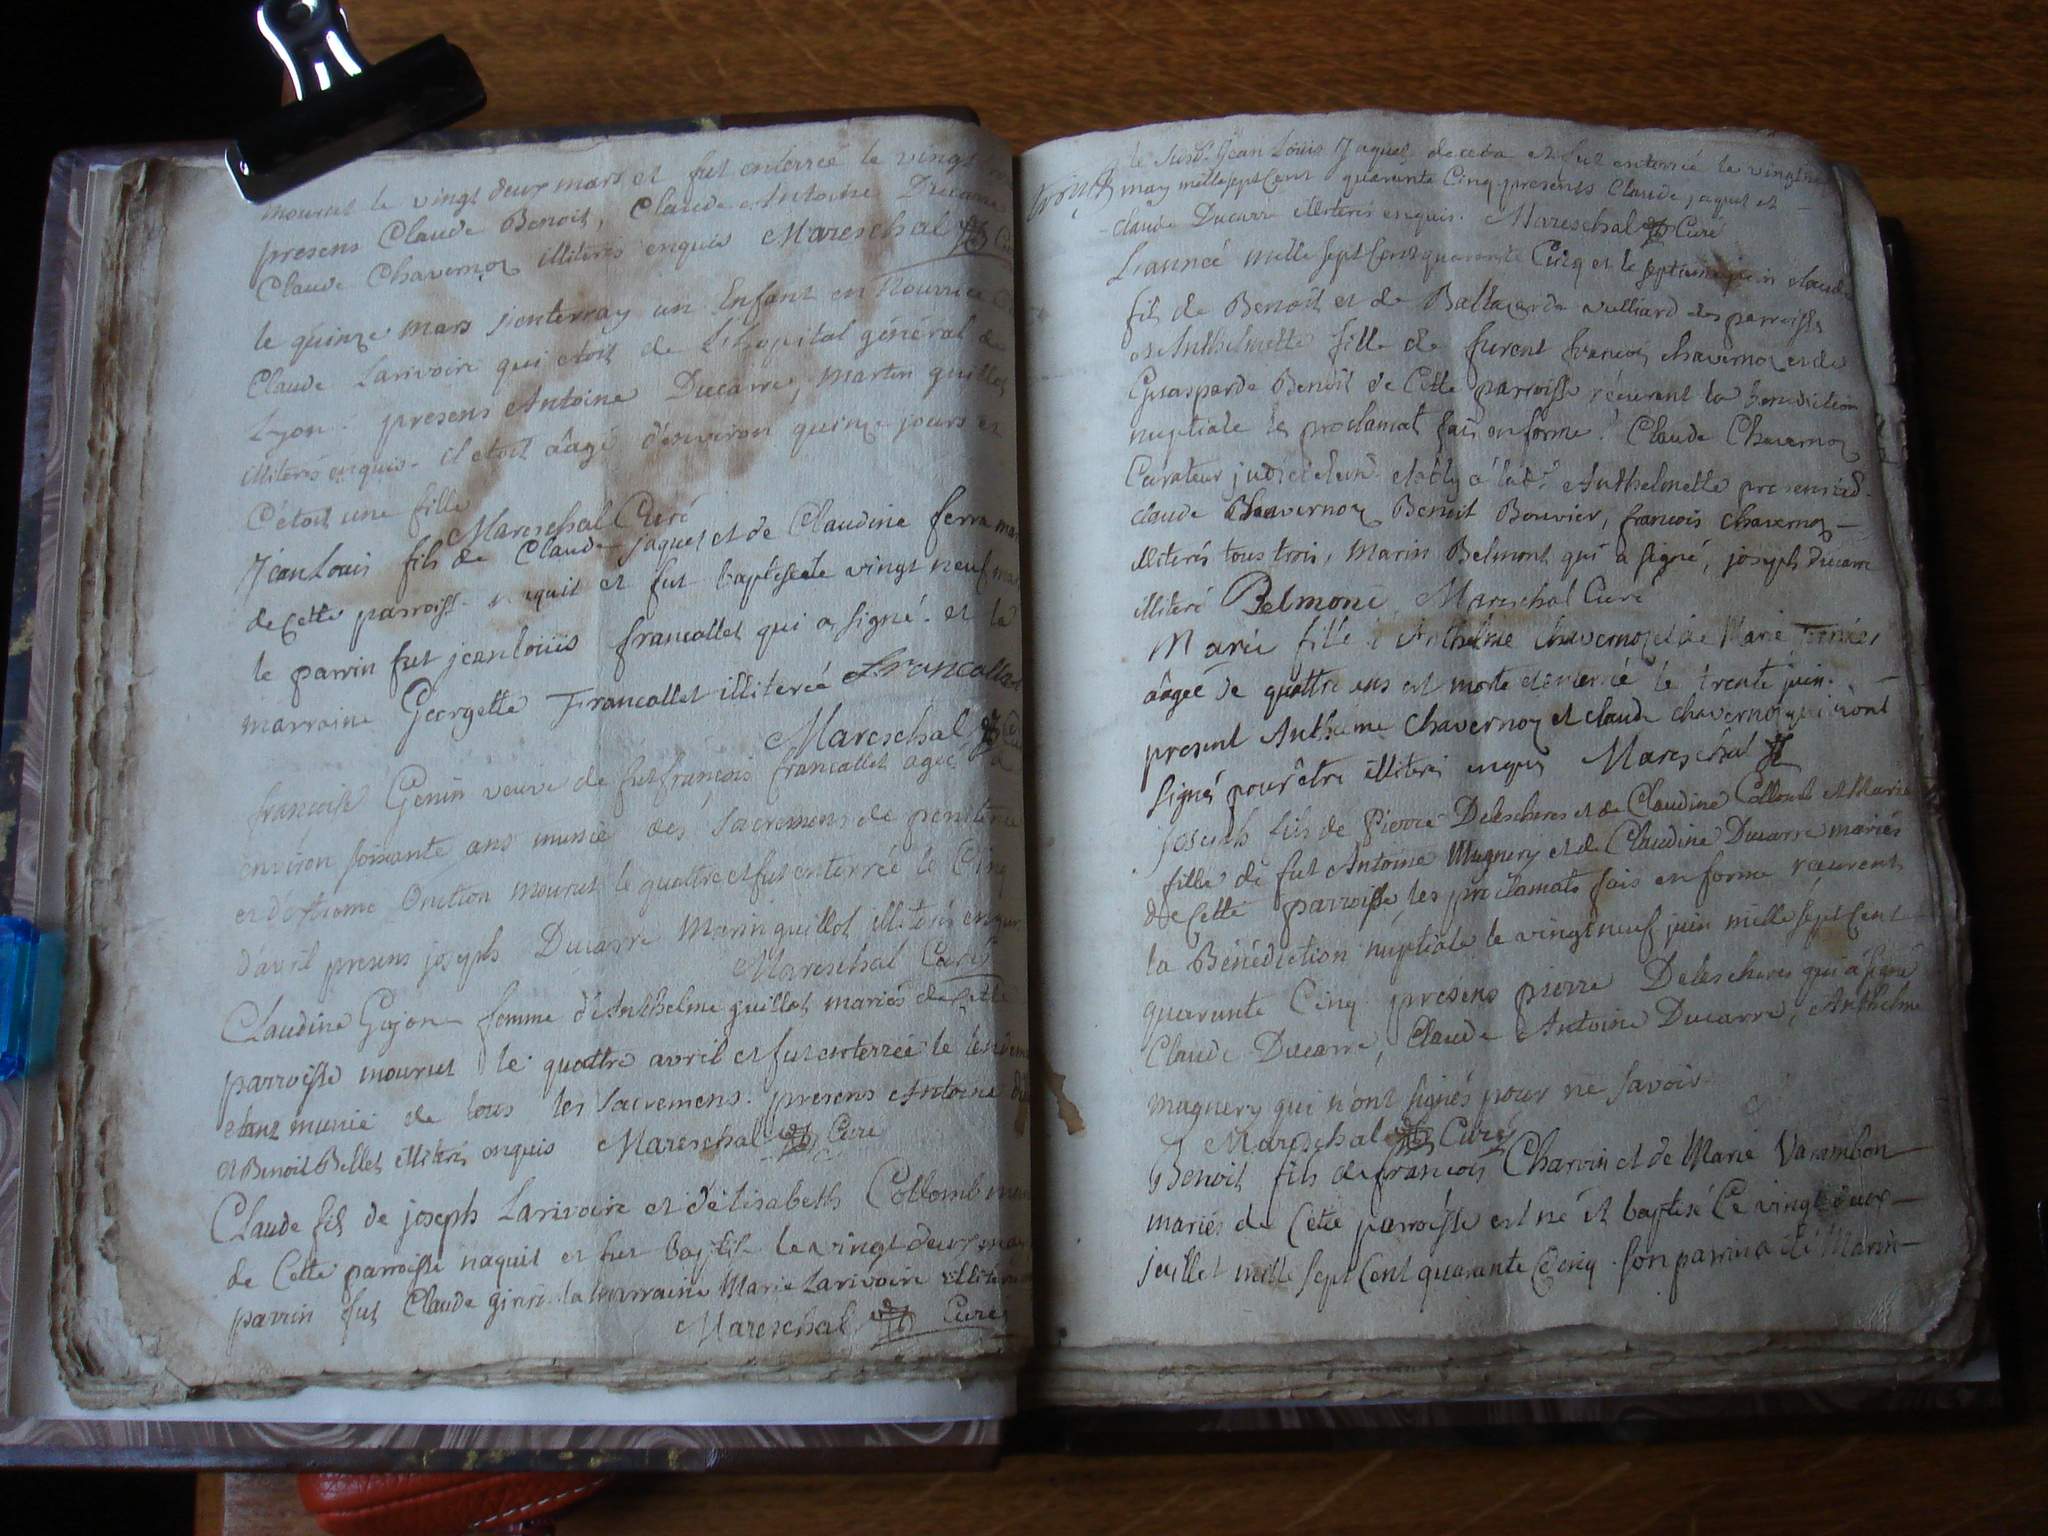 mourut le vingt deux mars et fut enterré le vingt
presens Claude Benoit, Claude Antoine Ducarre
Claude Chavernoz illiterés enquis Mareschal Curé
le quinze mars j'enterray un Enfant en Nourrice
Claude Larivoire qui etoit de L'hopital général de
Lyon. presens Antoine Ducarre, martin guillot
illiterés enquis. il etoit âagé d'environ quinze jours et
C'étoit une fille
Mareschal Curé
Jean Louis fils de Claude jaquet et de Claudine ferra
de Cette parroisse naquit et fut baptisé le vingt neuf mar
le parrin fut jean louis francallet qui a signé. et la
marraine Georgette Francallet illiterée Francallet
Mareschal
francoise Genin veuve de fut francois francallet agée
environ soixante ans munie des Sacremens de penitence
et d'extreme Onction mourut le quattre et fut enterrée le Cinq
d'avril presens joseph Ducarre Marin guillot illiterés enquis
Mareschal Curé
Claudine Gojon femme d'Anthelme guillot mariés de Cette
parroisse mourut le quattre avril et fut enterrée le
etant munie de tous les Sacremens. presens Antoine
et Benoit Bellet illiterés enquis Mareschal Curé
Claude fils de joseph Larivoire et d'élisabeth Collomb
de Cette parroisse naquit et fut baptisé le vingt deux mars
parrin fut Claude girin la marraine Marie Larivoire illiteré
Mareschal Curé
le susd. Jean Louis Jaquet deceda et fut enterré le
may mille sept Cent quarante Cinq presens Claude jaquet et
Claude Ducarre illiterés enquis. Mareschal Curé
L'année mille sept Cent quarante Cinq et le septieme juin claude
fils de Benoit et de Baltazarde vulliard des parroisse
et Anthelmette fille de furent francois chavernoz et de
Gasparde Benoit de Cette parroisse récurent la benediction
nuptiale les proclamats fais en forme. Claude Chavernoz
Curateur etably à lad.e Anthelmette presens
claude Chavernoz Benoit Bouvier, francois chavernoz
illiterés tous trois, Marin Belmont qui a signé, joseph Ducarre
illiteré Belmont Mareschal Curé
Marie fille d'Anthelme chavernoz et de Marie
âagée de quattre ans est morte et enterrée le trente juin.
present Anthelme Chavernoz et claude chavernoz qui n'ont
signés pour être illiterés enquis Mareschal
joseph fils de Pierre Deleschères et de Claudine Collomb et Marie
fille de fut Antoine Mugnery et de Claudine Ducarre mariés
de Cette parroisse, les proclamats fais en forme récurent
la Bénédiction nuptiale le vingt neuf juin mille sept Cent
quarante Cinq. présens pierre Deleschères qui a signé
Claude Ducarre, Claude Antoine Ducarre, Anthelme
mugnery qui n'ont signés pour ne savoir
Mareschal Curé
Benoit fils de francois Charvin et de Marie Varambon
mariés de Cette parroisse est né et baptisé Ce vingt deux
juillet mille sept Cent quarante Cinq. son parrin a été Marin